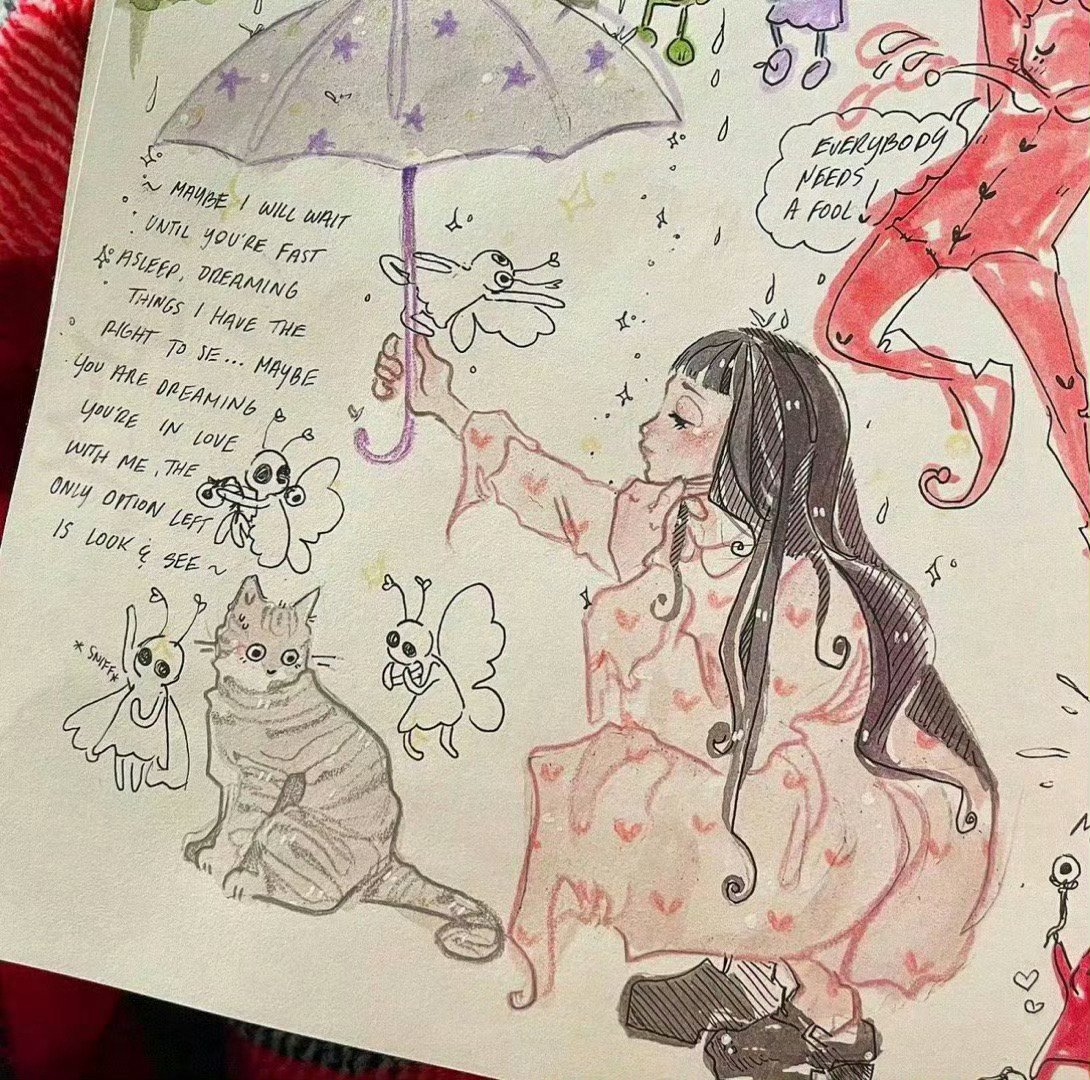 ~ MAYBE I WILL WAIT
UNTIL YOU'RE FAST
ASLEEP, DREAMING
THINGS I HAVE THE
RIGHT TO SE... MAYBE
YOU ARE DREAMING
YOU'RE IN LOVE
WITH ME, THE
ONLY OPTION LEFT
IS LOOK & SEE ~
EVERYBODY
NEEDS
A FOOL!
*SNIFF*